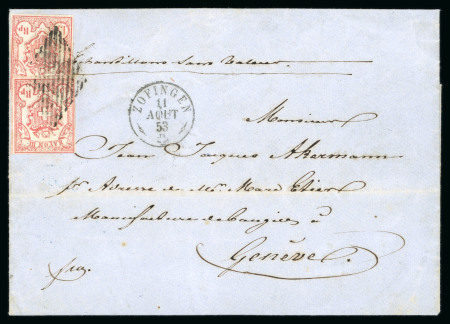 Echantillons sans Valeur.
ZOFINGEN
11
AOUT
53
Monsieur
Jean Jacques Akermann
pr Adresse de Mr. Marc
Manufacture de bougies à
Genève.